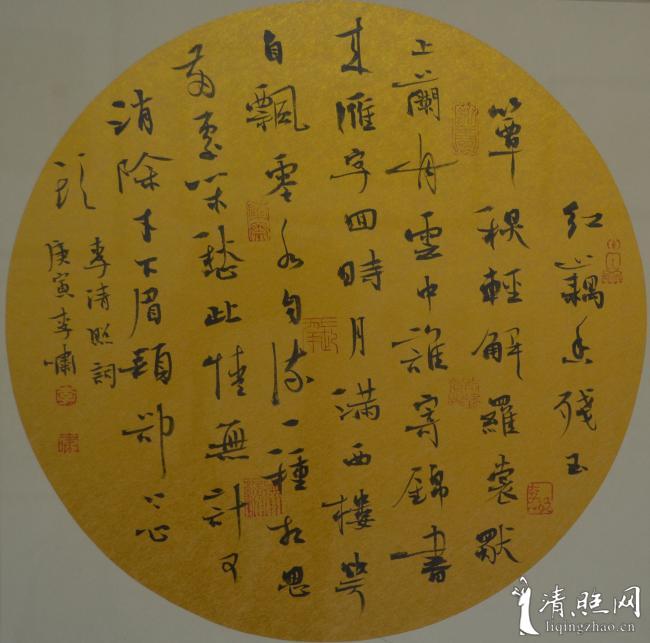 紅藕香殘玉
簟秋輕解羅裳獨
上蘭舟雲中誰寄錦書
來雁字回時月滿西樓花
自飄零水自流一種相思
兩處閑愁此情無計可
消除才下眉頭卻上心
頭
李清照詞
庚寅李嘯
清照网
liqingzhao.cn